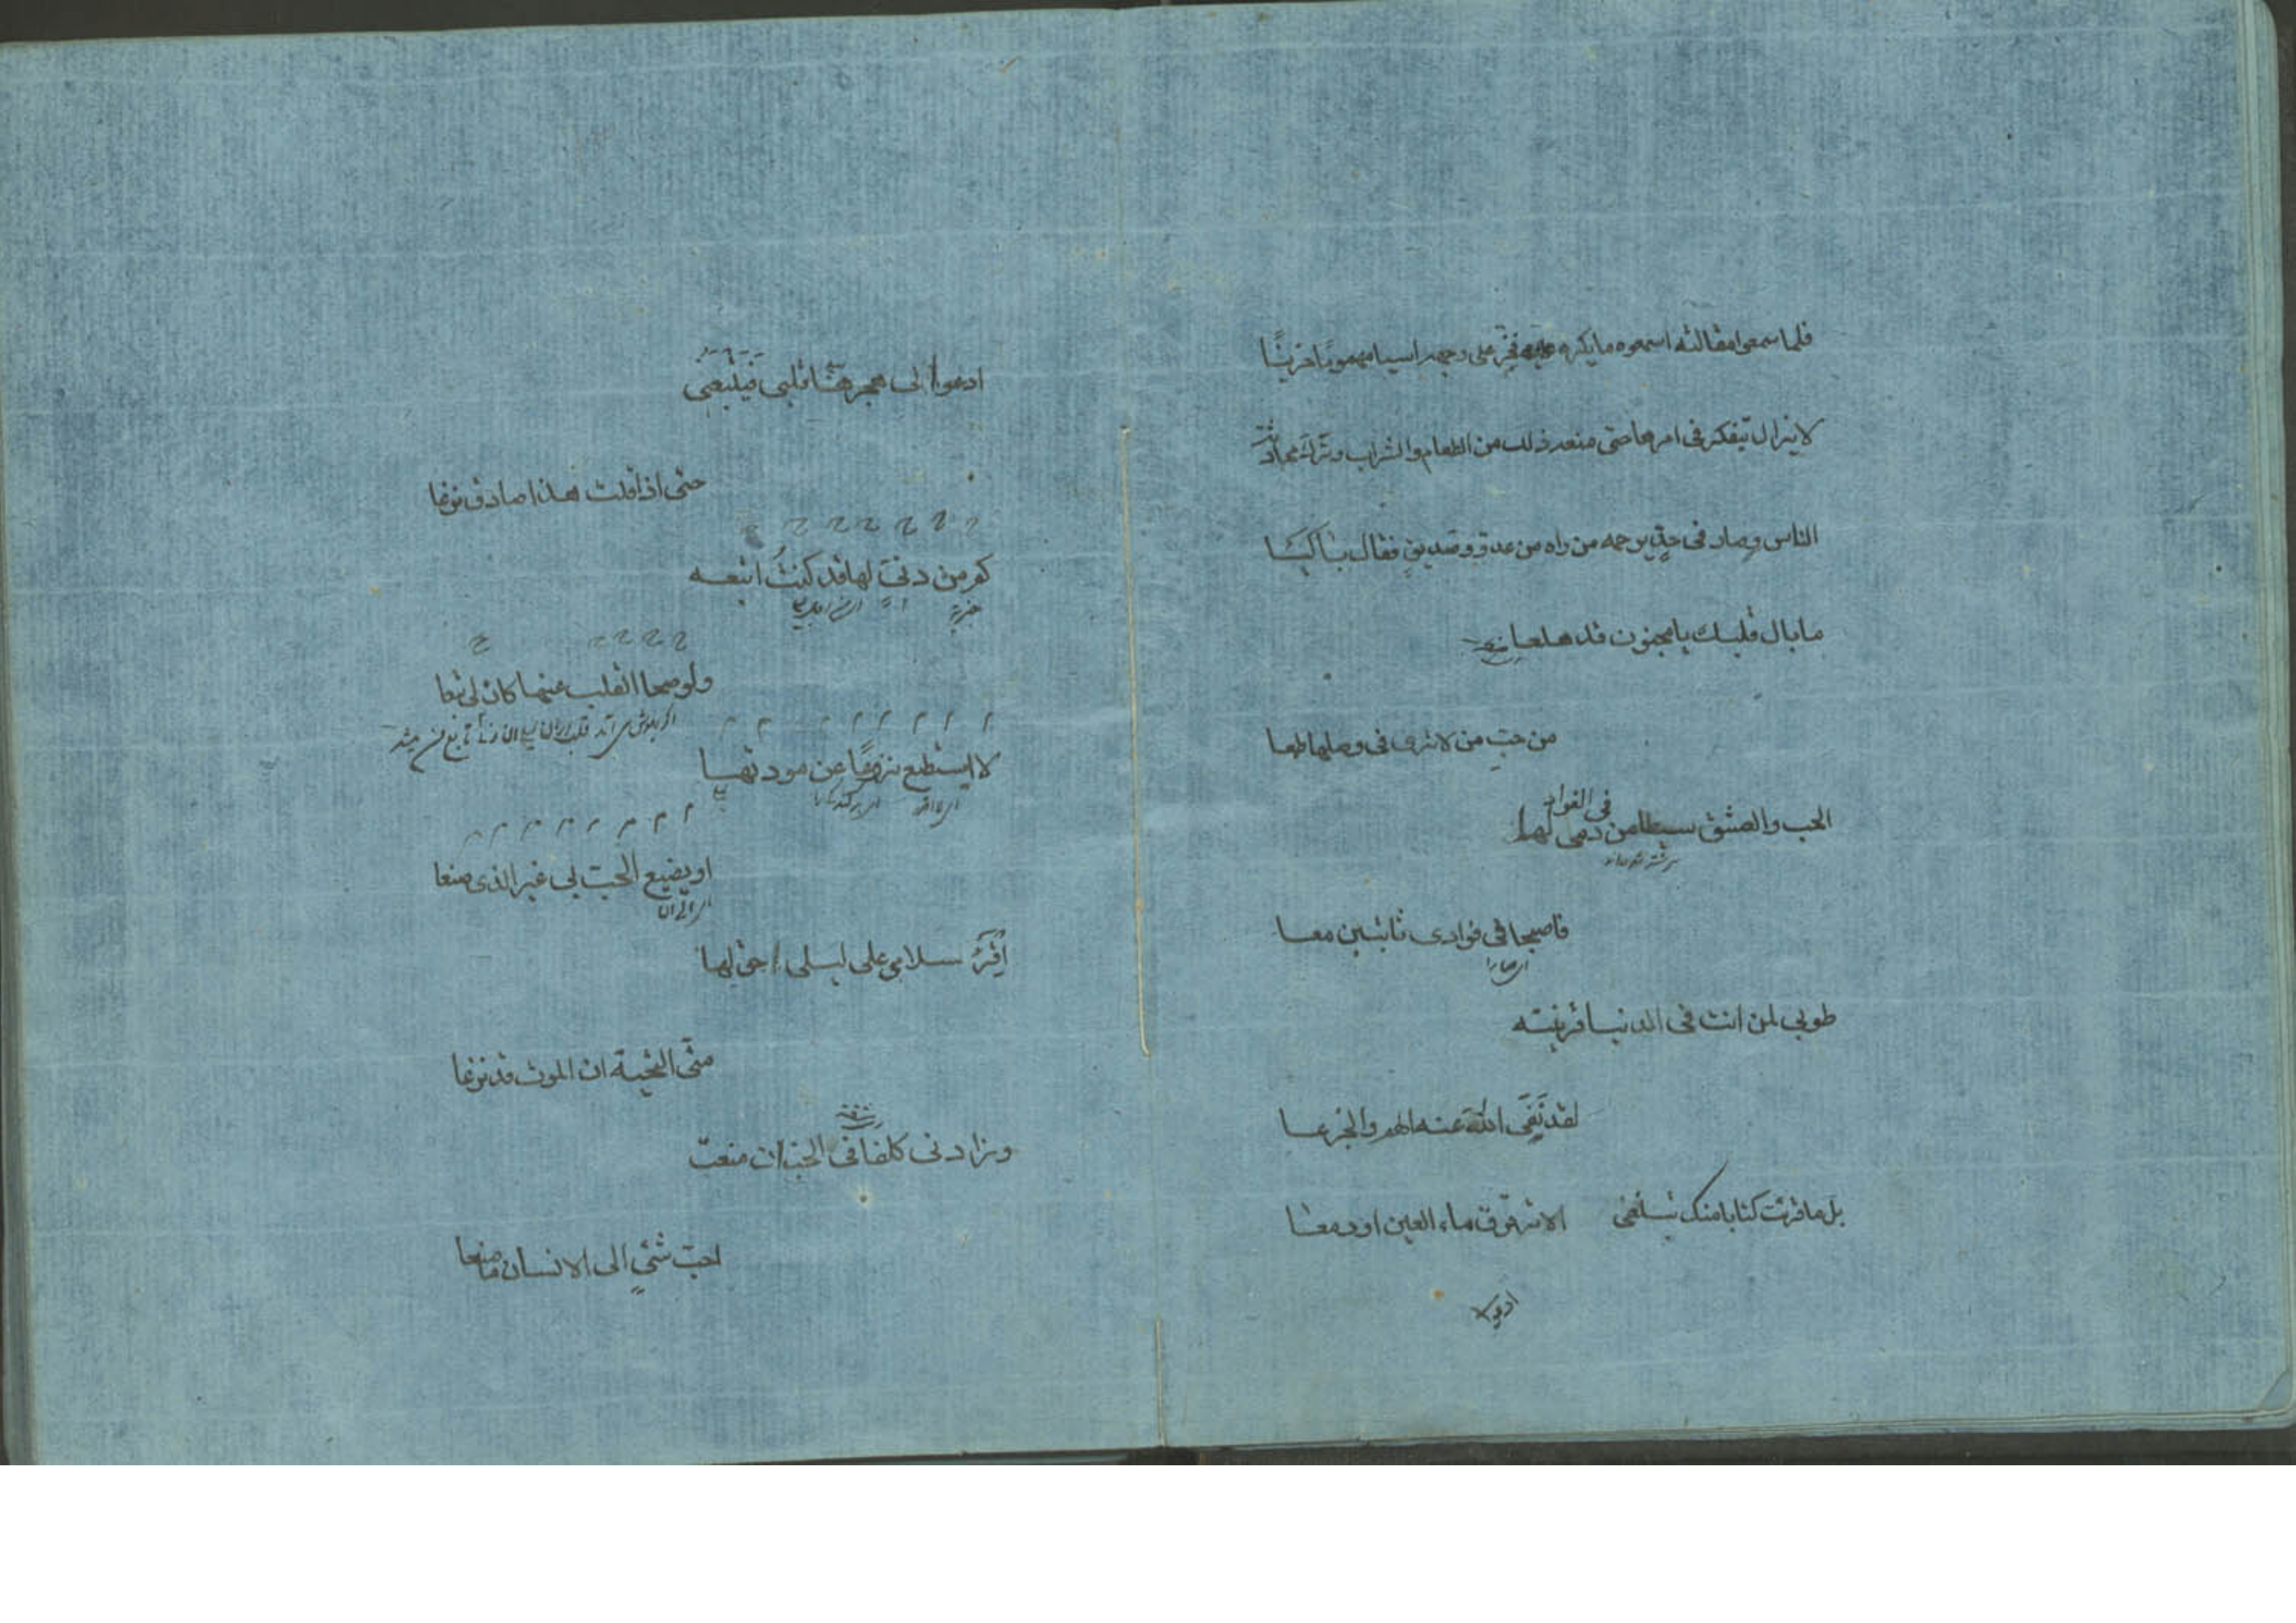 فلما سمعوا مقالته اسمعوه ما يكره فخر على وجهه اسيا مهموما حزينًا
لا يزال يتفكر فى امرها حتى منعه ذلك من الطعام والشراب وترك محادثة
الناس وصار فى حدّ يرحمه من راه من عدوّ وصديق فقال باكيا
ما بال قلبك يا مجنون قد هلعا
من حبّ من لا ترى فى وصلها طمعا
الحب والعشق سيطا من دمى لهما
فى الفواد
فاصبحا فى فوادى ثابتين معا
اى صارا
طوبى لمن انت فى الدنيا قرينته
لقد نَفَى اللّه عنه الهم والجزعا
بل ما قرئت كتابا منك يبلغنى الا ترقرق ماء العين او دمعا
ادعوا
ادعوا الى هجرها قلبى فيَتْبعنى
حتى اذا قلت هذا صادق نزعا
كم من دنىّ لها قد كنتُ اتبعه
ولو صحا القلب عنها كان لى تبعا
لا استطيع نزوعًا عن مودتها
او يضيع الحبّ بى غير الذى صنعا
اِقْرَءْ سلامى على ليلى وحق لها
منّى التحية ان الموت قد نزعا
وزادنى كلفًا فى الحبّ ان منعت
احبّ شئىٍ الى الانسان ما منعا